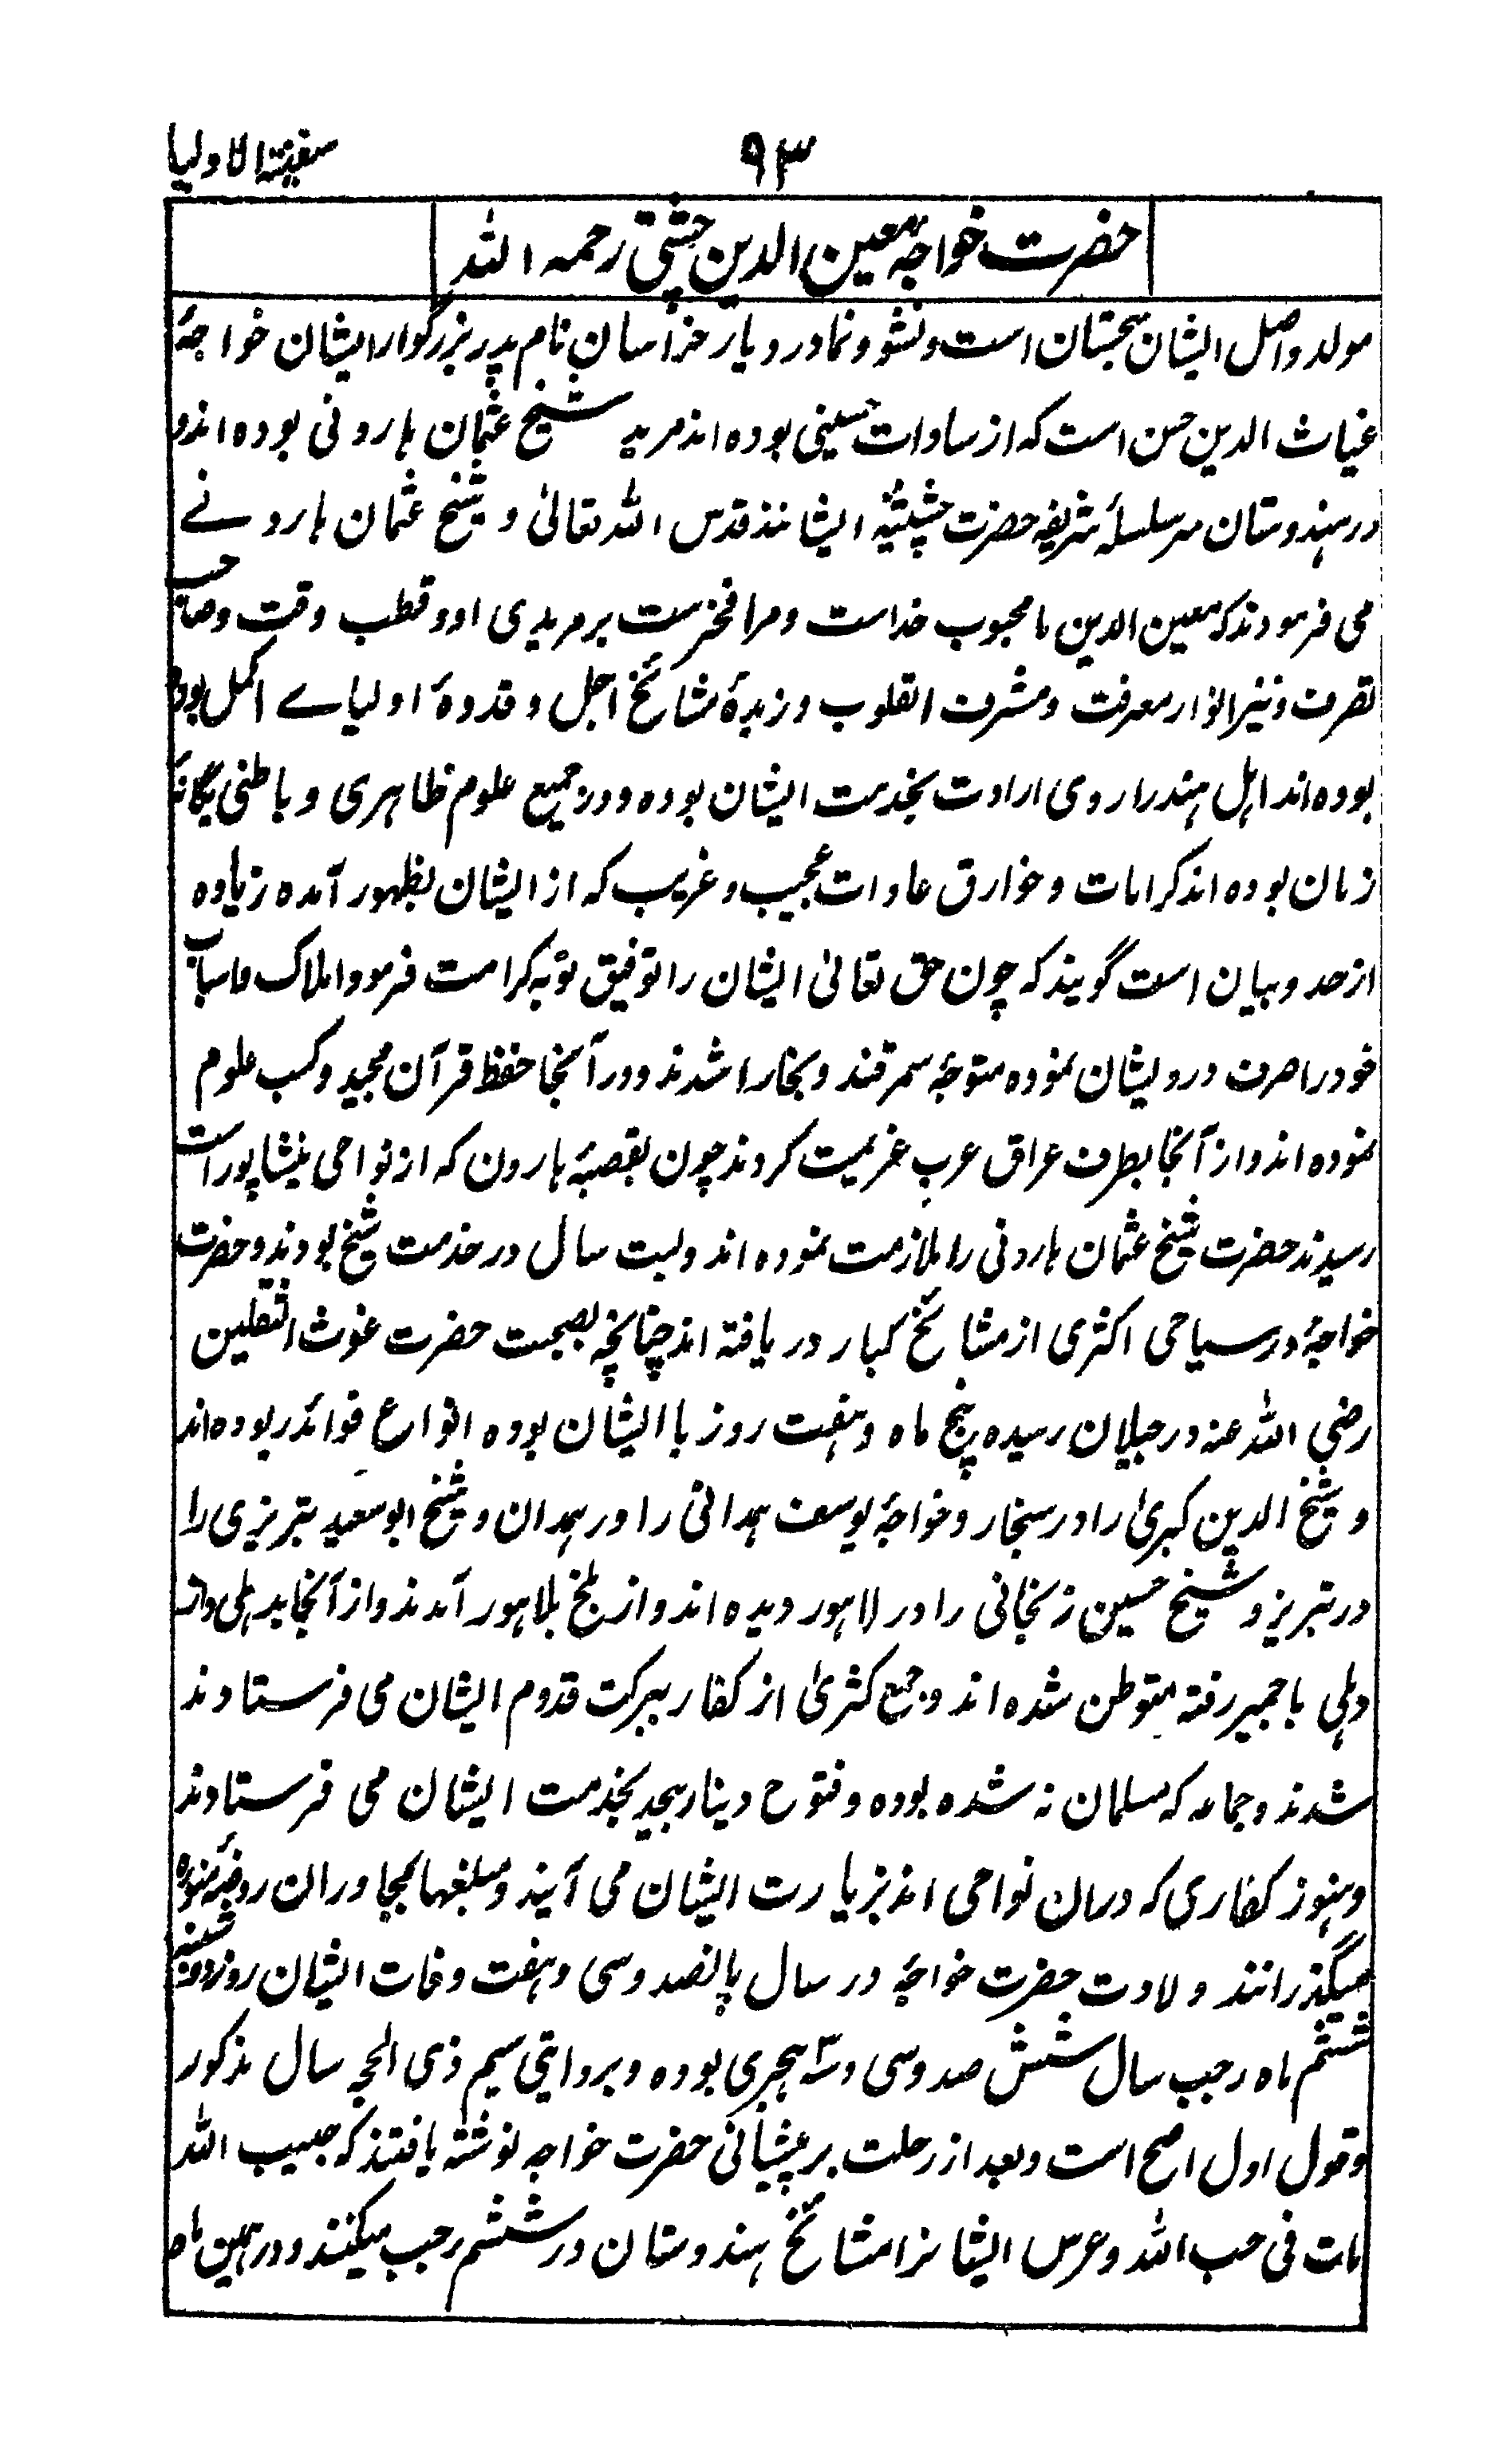 سفینۃالاولیا
۹۳
حضرت خواجہ معین الدین چشتی رحمہ اللہ
مولد واصل ایشان سجستان است ونشو ونما در دیار خراسان نام پدر بزرگوار ایشان خواجۂ
غیاث الدین حسن است کہ از سادات حسینی بودہ اند مرید شیخ عثمان ہارونی بودہ اندو
در ہندوستان سرسلسلۂ شریفہ حضرت چشتیۂ ایشانند قدس اللہ تعالیٰ و شیخ عثمان ہارونے
می فرمودند کہ معین الدین ما محبوب خداست ومرا فخرست بر مریدی او وقطب وقت وصاحب
تصرف ونیز انوار معرفت ومشرف القلوب وزبدۂ مشائخ اجل وقدوۂ اولیاے اکمل بود
بودہ اند اہل ہندرا روی ارادت بخدمت ایشان بودہ ودر جمیع علوم ظاہری وباطنی یگانۂ
زمان بودہ اند کرامات وخوارق عادات عجیب وغریب کہ از ایشان بظہور آمدہ زیادہ
از حد وبیان است گویند کہ چون حق تعالیٰ ایشان را توفیق توبہ کرامت فرمود املاک واسباب
خود را صرف درویشان نمودہ متوجۂ سمرقند وبخارا شدند ودر آنجا حفظ قرآن مجید وکسب علوم
نمودہ اند واز آنجا بطرف عراق عرب عزیمت کردند چون بقصبۂ ہارون کہ از نواحی نیشاپور است
رسیدند حضرت شیخ عثمان ہارونی را ملازمت نمودہ اند وبست سال در خدمت شیخ بودند وحضرت
خواجۂ در سیاحی اکثری از مشائخ کبار دریافتہ اند چنانچہ بصحبت حضرت غوث الثقلین
رضی اللہ عنہ در جیلان رسیدہ پنج ماہ وہفت روز باایشان بودہ انواع فوائد ربودہ اند
و شیخ الدین کبریٰ را در سنجار وخواجۂ یوسف ہمدانی را در ہمدان و شیخ ابو سعید تبریزی را
در تبریز وشیخ حسین زنجانی را در لاہور دیدہ اند واز بلخ بلاہور آمدند واز آنجا بدہلی واز
دہلی باجمیر رفتہ متوطن شدہ اند وجمع کثریٰ از کفار ببرکت قدوم ایشان می فرستادند
شدند وجماعہ کہ مسلمان نہ شدہ بودہ وفتوح دینار بیحد بخدمت ایشان می فرستادند
وہنوز کفاری کہ دران نواحی اند بزیارت ایشان می آیند ومبلغہا بمجاوران روضۂ منورہ
میگذرانند ولادت حضرت خواجۂ در سال پانصد وسی وہفت وفات ایشان روز دوشنبہ
ششم ماہ رجب سال شش صد وسی وسہ ہجری بودہ وبروایتی سیم ذی الحجہ سال مذکور
وقول اول اصح است وبعد از رحلت بر پیشانی حضرت خواجہ نوشتہ یافتند کہ حبیب اللہ
مات فی حب اللہ وعرس ایشانرا مشائخ ہندوستان در ششم رجب میکنند ودر ہمین ماہ